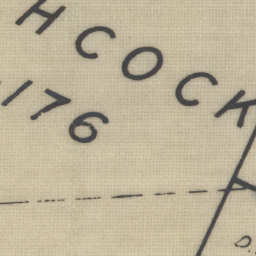 HCOCK
176